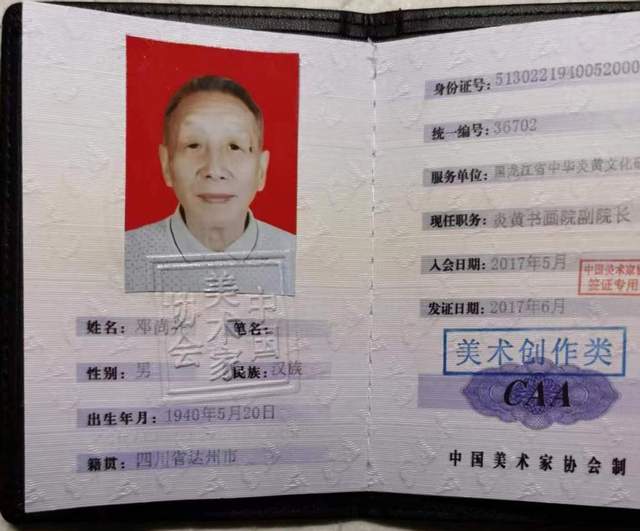 中国
美术家
协会
姓名：邓尚
笔名：
性别：男
民族：汉族
出生年月：1940年5月20日
籍贯：四川省达州市
身份证号：5130221940052000
统一编号：36702
服务单位：黑龙江省中华炎黄文化研
现任职务：炎黄书画院副院长
入会日期：2017年5月
中国美术家协
签证专用
发证日期：2017年6月
美术创作类
CAA
中国美术家协会制